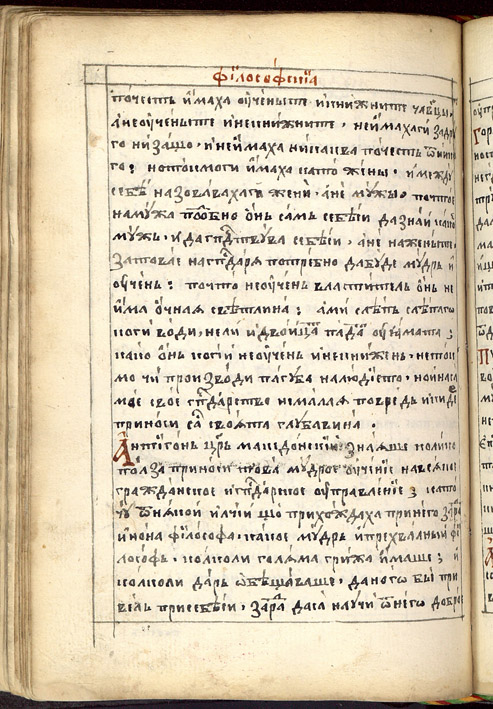 фїлосо́фскїа
почесть и҆маха ѹ҆ченыте и҆книжните чл҃вцы,
а҆неѹ҆ченыте и҆некнижните, неи҆махаги за дрꙋ
го низащо, и҆неи҆маха никаква почесть ѿ нико
го: нотокмоги и҆маха като жены, и҆между
себѣ назовавахасѧ жени, а҆не мꙋжы. почто е҆
намꙋжа подобно о҆нь самь себѣси дазнаи како
мꙋжь, и҆ да гп҃дтвꙋва себѣси, а҆не наженыте.
Затовае҆ нагп҃дара потребно дабꙋде мꙋдрь и҆
ѹ҆чень: почто неѹ҆чень властитель о҆нь не
и҆ма о҆чнаѧ свѣтлина: а҆ми слѣпь слѣпаго
коги води, нели и҆двоица падатъ оу҆ꙗмата;
како о҆нь коги и҆неѹ҆чень, и҆некнижень, нетокъ
мо чи производи пагꙋба налюдїето, нои҆насъ
мое свое гп҃дарство немалаѧ повредь и҆ где
приноси са своѧта глꙋбавина.
А҆нтїгонь цр҃ь македонскїй, знаѧше колико
полза приноси това мꙋдрое ѹ҆ченїе навсѧкое
гражданское и҆гп҃дарское ѹ҆правленїе; като
чꙋ ѿнѧкои и҆лчїи що прихождаха при него за ра
и҆нона фїлософа, какое мꙋдрь и҆прехвалный фї
лософь, колколи голѧма грижа и҆маше; и҆
колколи дарь ѡ҆бѣщаваше, даногѡ бы при
вель присебѣси, зара даса наꙋчи ѿнего добрѣ